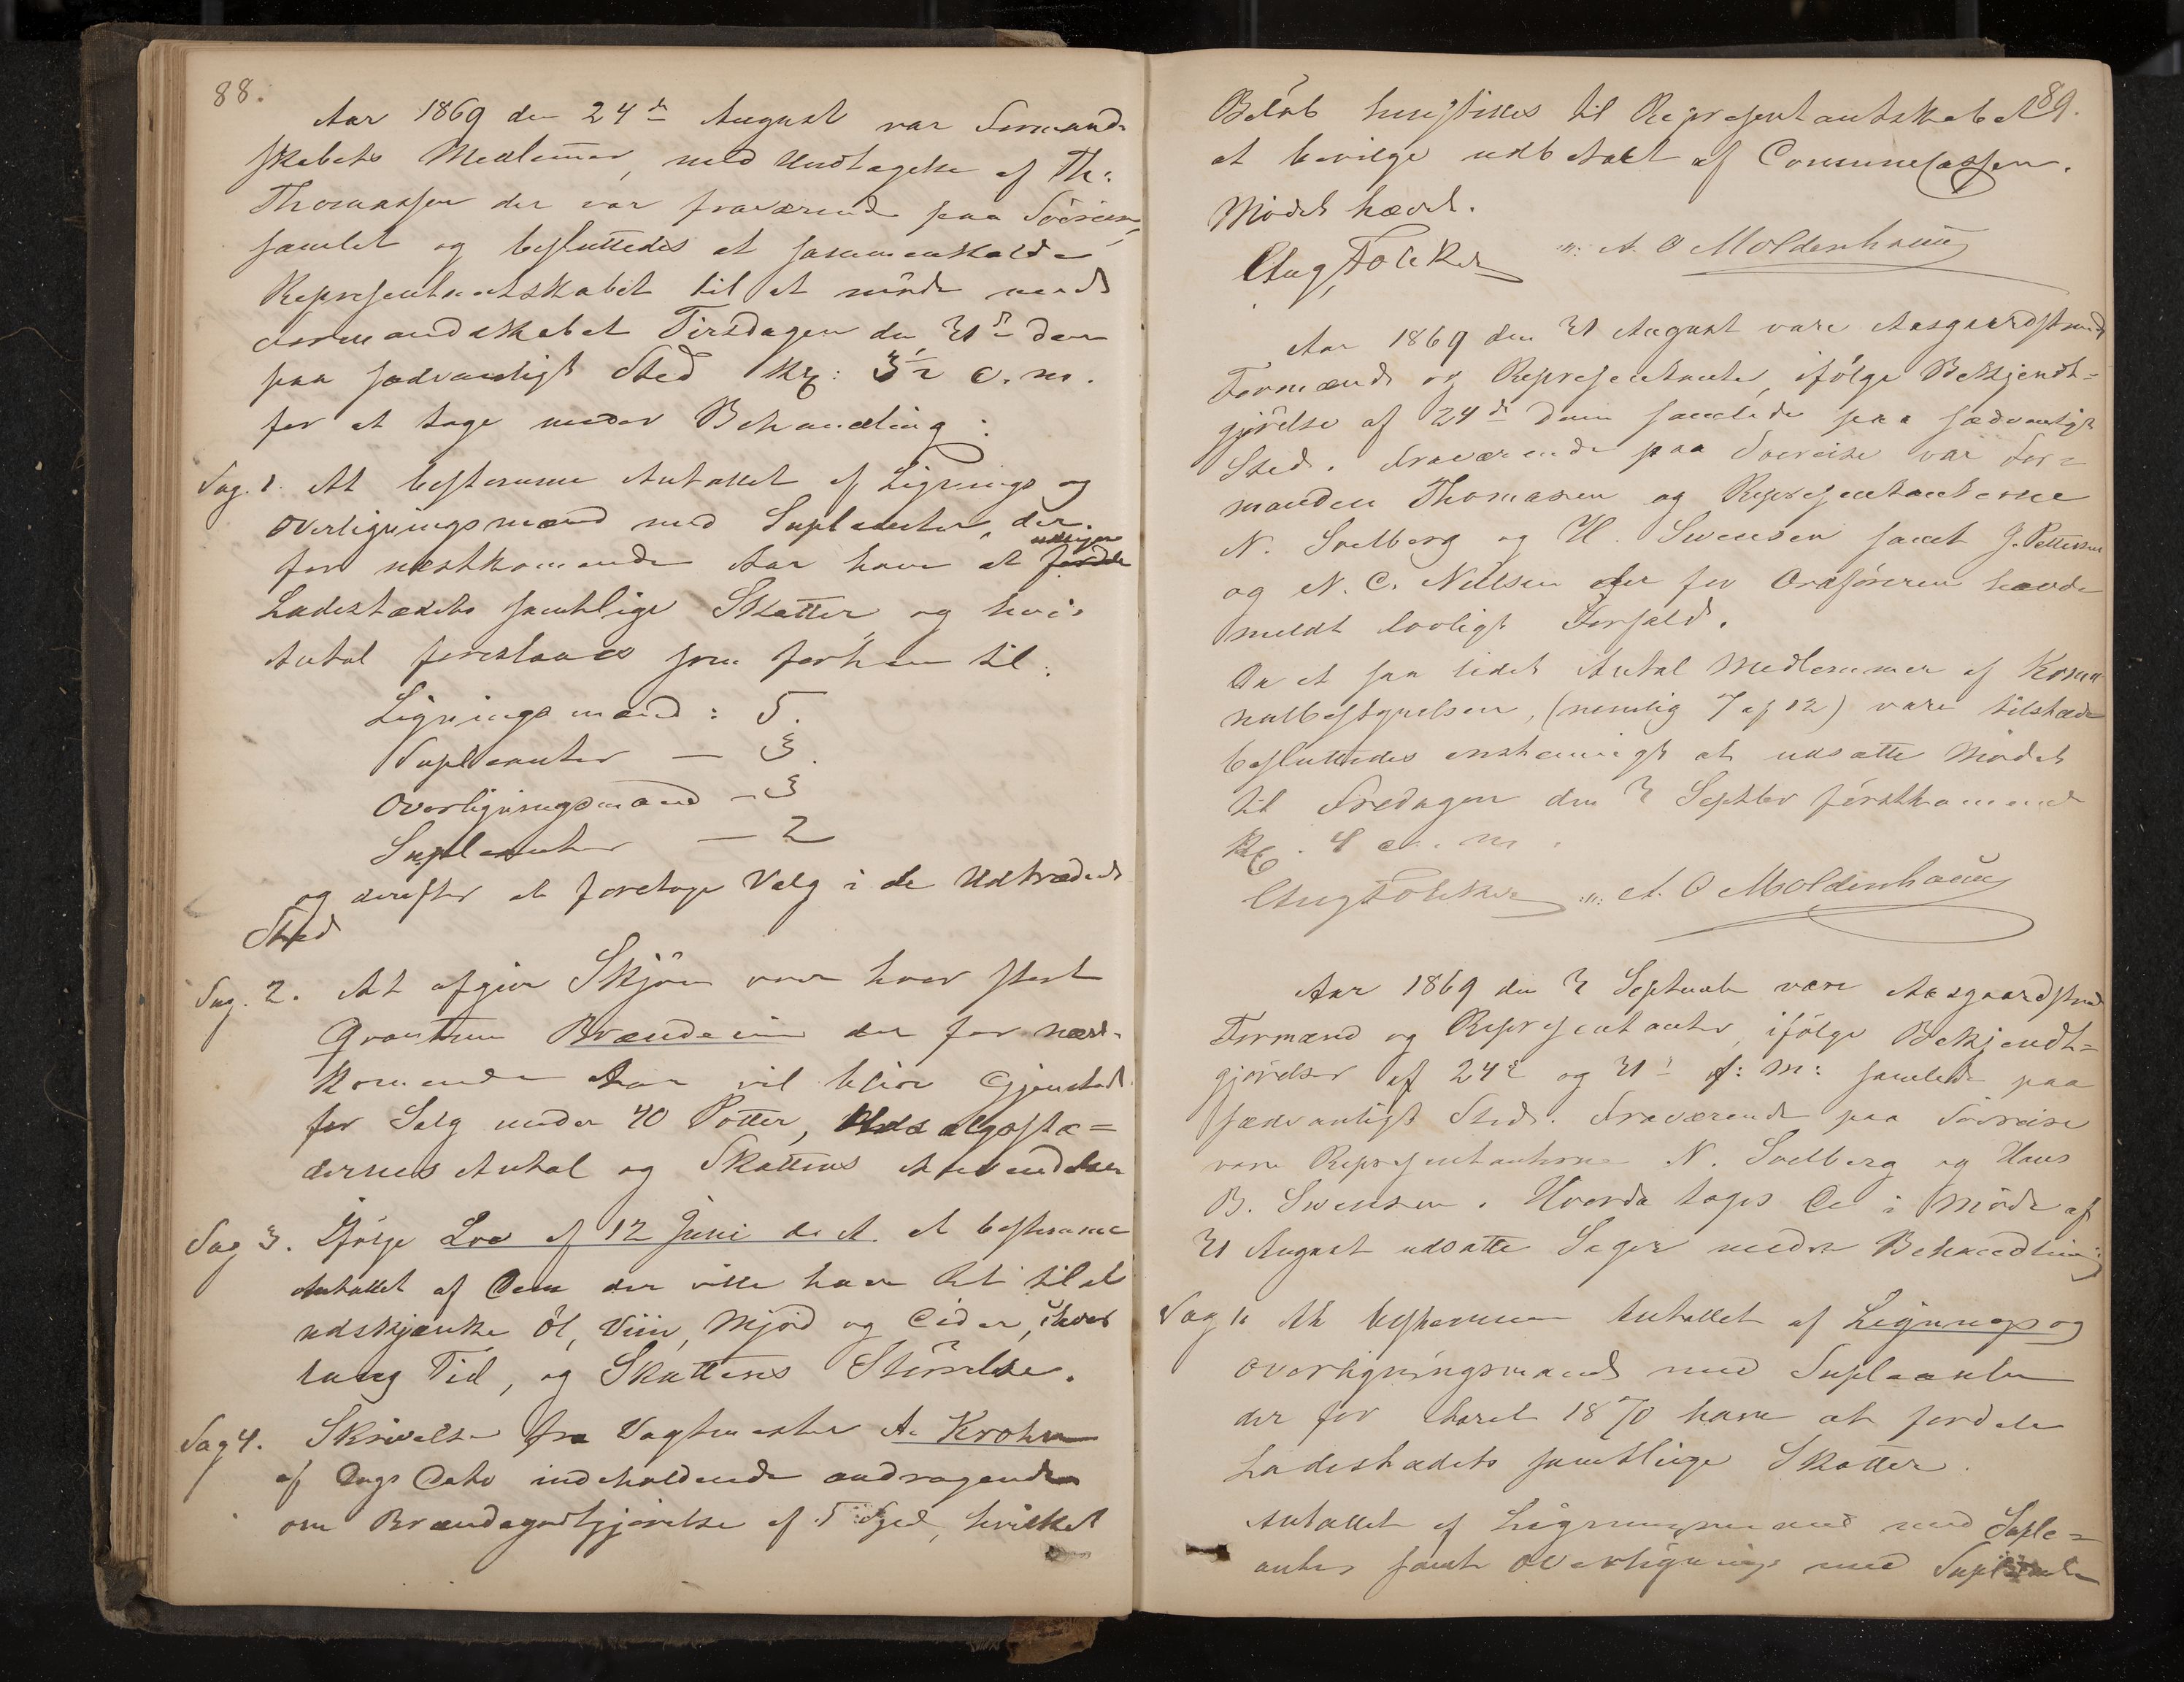 88.
Aar 1869 den 24de August var Formand-
skabets Medlemmer, med Undtagelse af Th:
Thomassen der var fraværende paa Söreise,
samlet og besluttedes at sammenkalde
Representantskabet til et möde med
Formandskabet Tirsdagen den 31te dens
paa sædvanligt Sted Kl: 3½ e. m.
for at tage under Behandling:
Sag. 1. At bestemme Antallet af Lignings og
Overligningsmænd med Suplenter, der
for næstkommende Aar have at fordele
Ladestædets samtlige Skatter og hvis
Antal foreslaaes som forhen til:
Ligningsmænd: 5.
Suplenter — 3.
Overligningsmænd - 3
Suplenter — 2
og derefter at foretage Valg i de Udtrædendes
Sted
Sag. 2. At afgive Skjön over hvor stort
Qvantum Brændeviin der for næst-
kommende Aar vil blive Gjenstand
for Salg under 40 Potter, Udsalgsstæ=
dernes Antal og Skattens Anvendelse
Sag 3. Ifölge Lov af 12 Juni d. A. at bestemme
Antallet af Dem der ville have Ret til at
udskjænke Öl, Viin, Mjöd og Cider, i hvor
lang Tid, og Skattens Störrelse.
Sag 4. Skrivelse fra Vagtmester A. Krohn
af Dags Dato indeholdende andragende
om Brændegodtgjörelse af 5 Spd, hvilket
89.
Belöb henstilles til Representantskabet
at bevilge udbetalt af Communecassen.
Mödet hævet.
Aug, Foleker A. O Moldenhauer
Aar 1869 den 31 August vare Aasgaardstrands
Formænd og Representanter, ifölge Bekjendt=
gjörelse af 24de dens samlede paa sædvanligt
Sted. Fraværende paa Söereise var For=
manden Thomasen og Representanterne
N. Soelberg og H. Swensen samt J. Pettersen
og N. C. Nielsen der for Ordföreren havde
meldt lovligt Forfald.
Da et saa lidet Antal Medlemmer af Kommu
nalbestyrelsen, (nemlig 7 af 12) vare tilstæde
besluttedes enstemmigt at udsætte Mödet
til Fredagen den 3 Septbr förstkommende
Kl. 4 e. m.
Aug Foleker A. O Moldenhauer
Aar 1869 den 3 September vare Aasgaardstrands
Formænd og Representanter, ifölge Bekjendt=
gjörelser af 24de og 31te f: M: samlede paa
sædvanligt Sted. Fraværende paa Söereise
vare Representanterne N. Soelberg og Hans
B. Swensen. Hvorda toges De i Möde af
31 August udsatte Sager under Behandling:
Sag 1. At bestemme Antallet af Lignings og
Overligningsmænd med Suplenter
der for Aaret 1870 have at fordele
Ladestædets samtlige Skatter.
Antallet af Ligningsmænd med Suple=
anter samt Overlignings med Suplenter